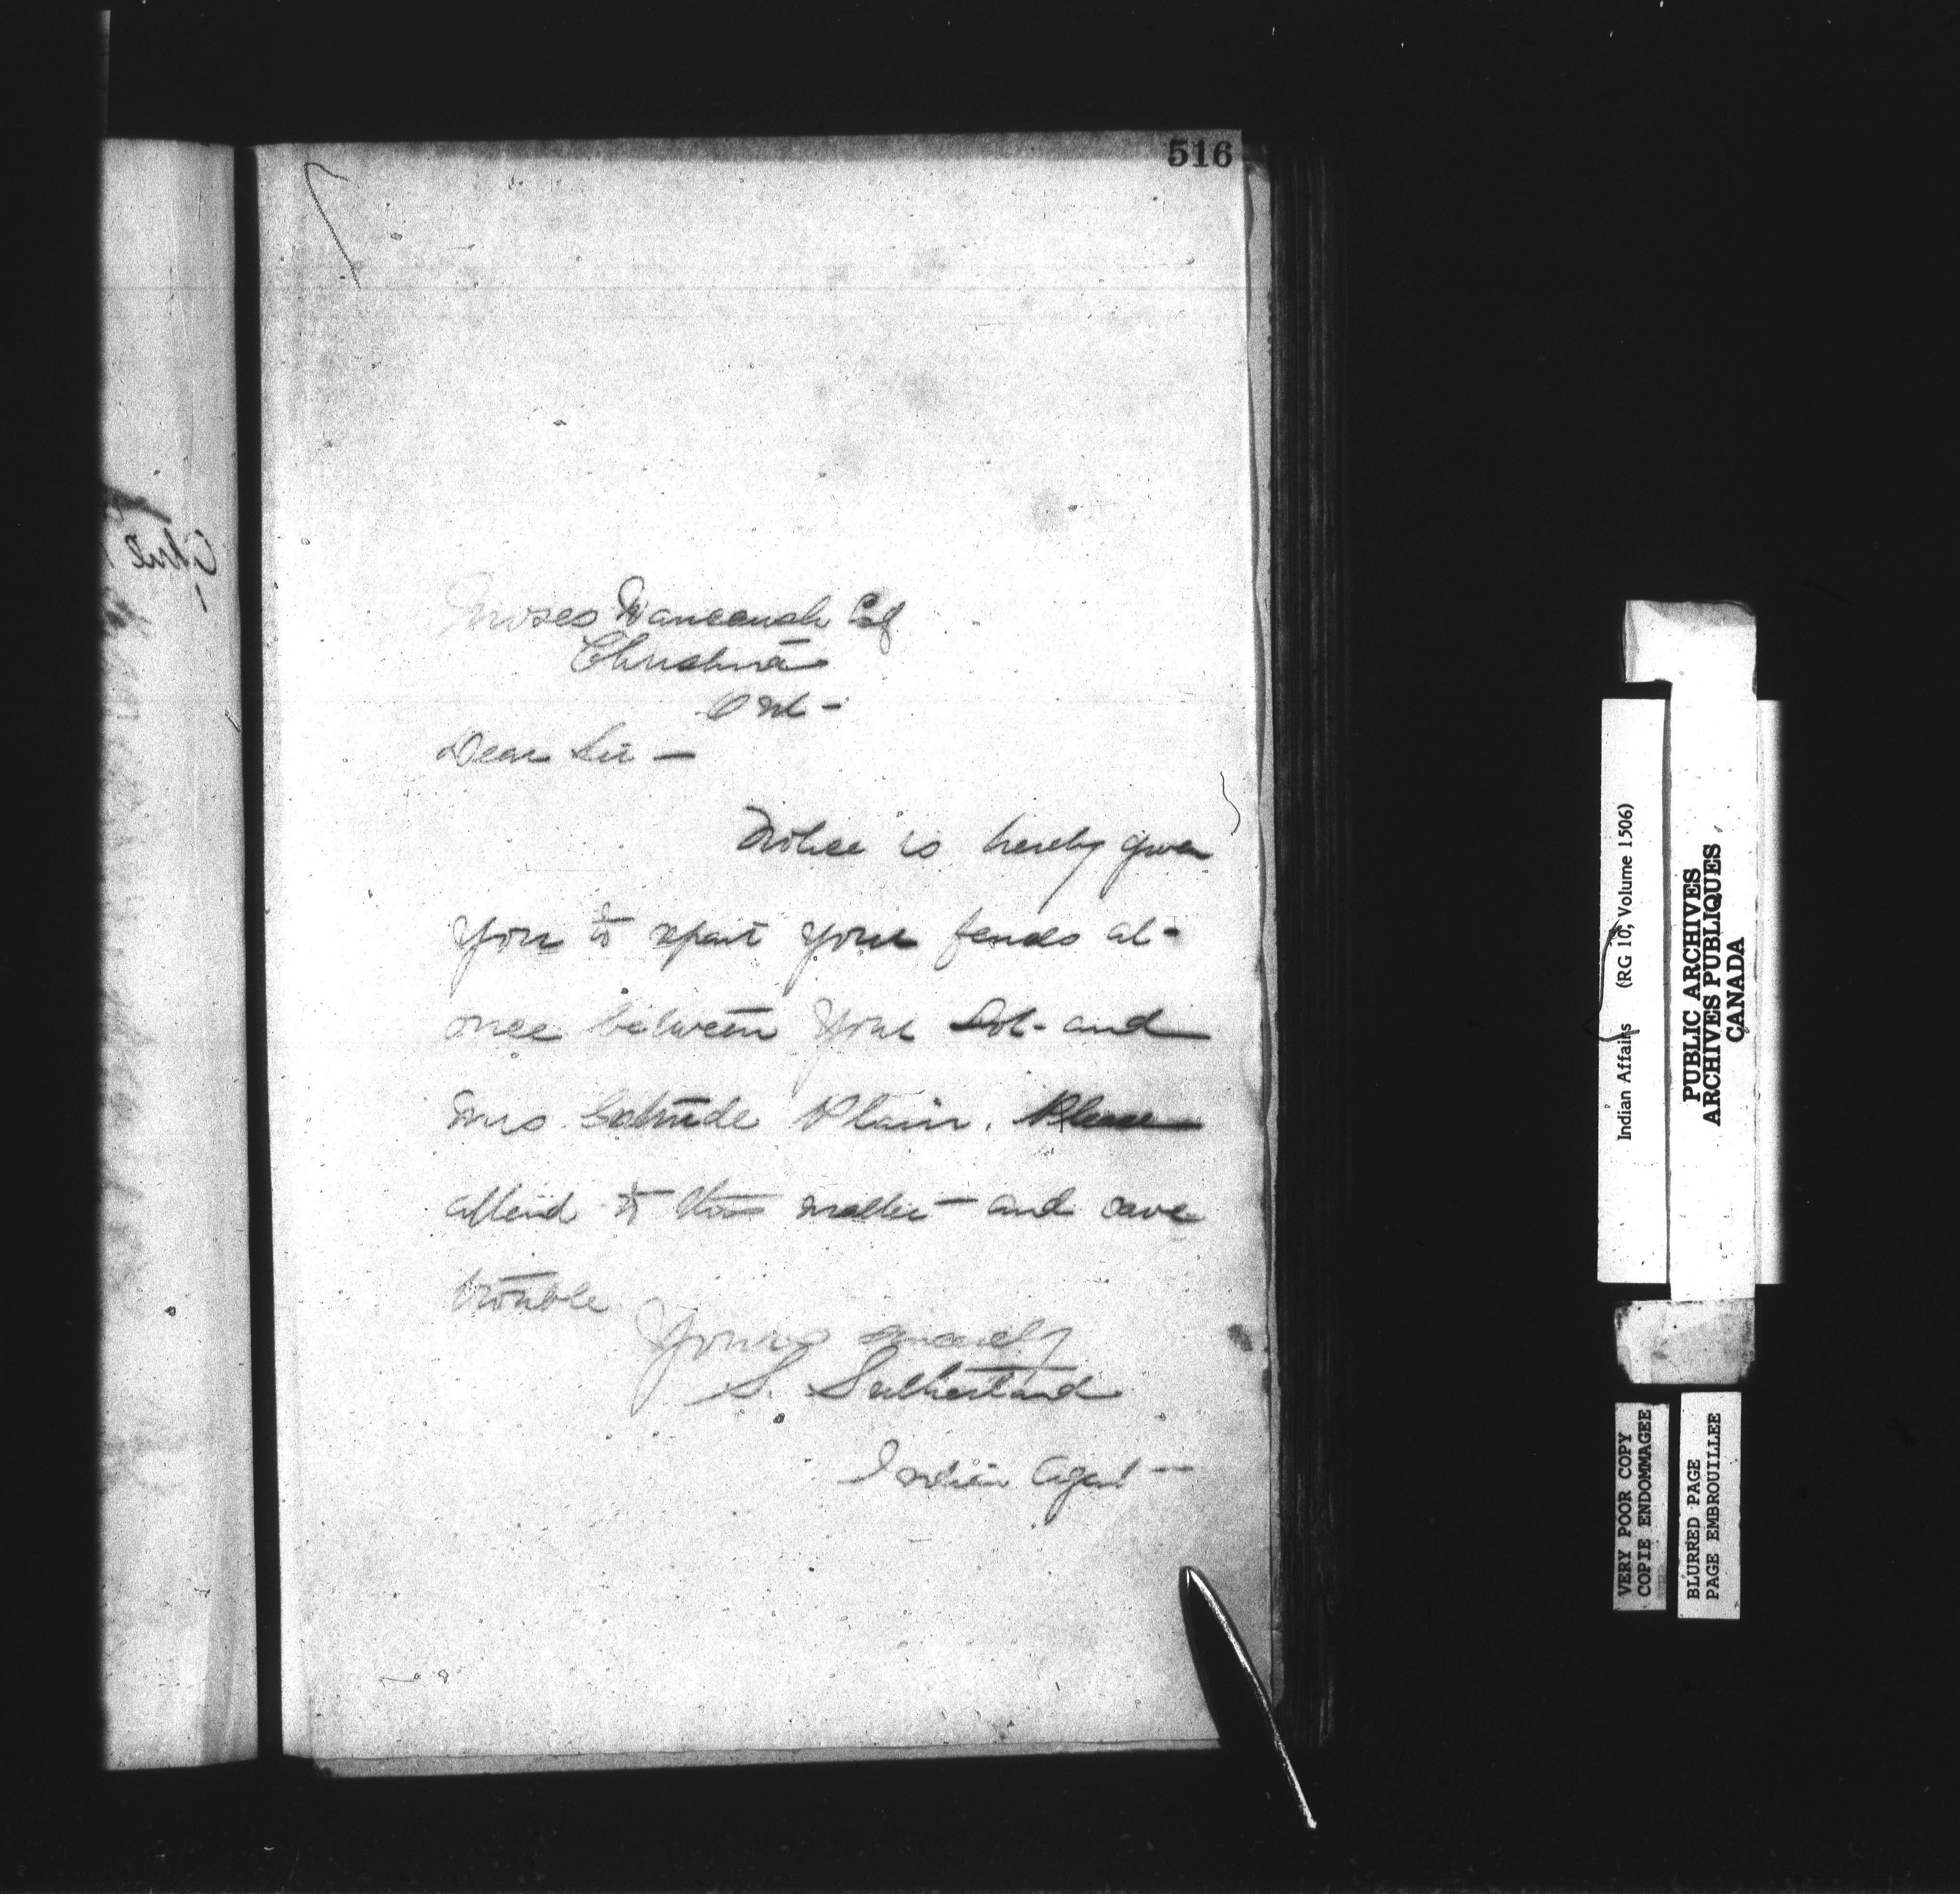 516
Moses Waucaush Esq
Christina
Ont -
Dear Sir -
Notice is hereby given
you to repair your fences at -
once between your Lot - and
Mrs. Getrude Plain. Please
attend to this matter - and save
trouble
Yours sincerely
S. Sutherland
Indian Agent -
Indian Affairs (RG 10, Volume 1506)
PUBLIC ARCHIVES
ARCHIVES PUBLIQUES
CANADA
VERY POOR COPY
COPIE ENDOMMAGEE
BLURRED PAGE
PAGE EMBROUILLEE